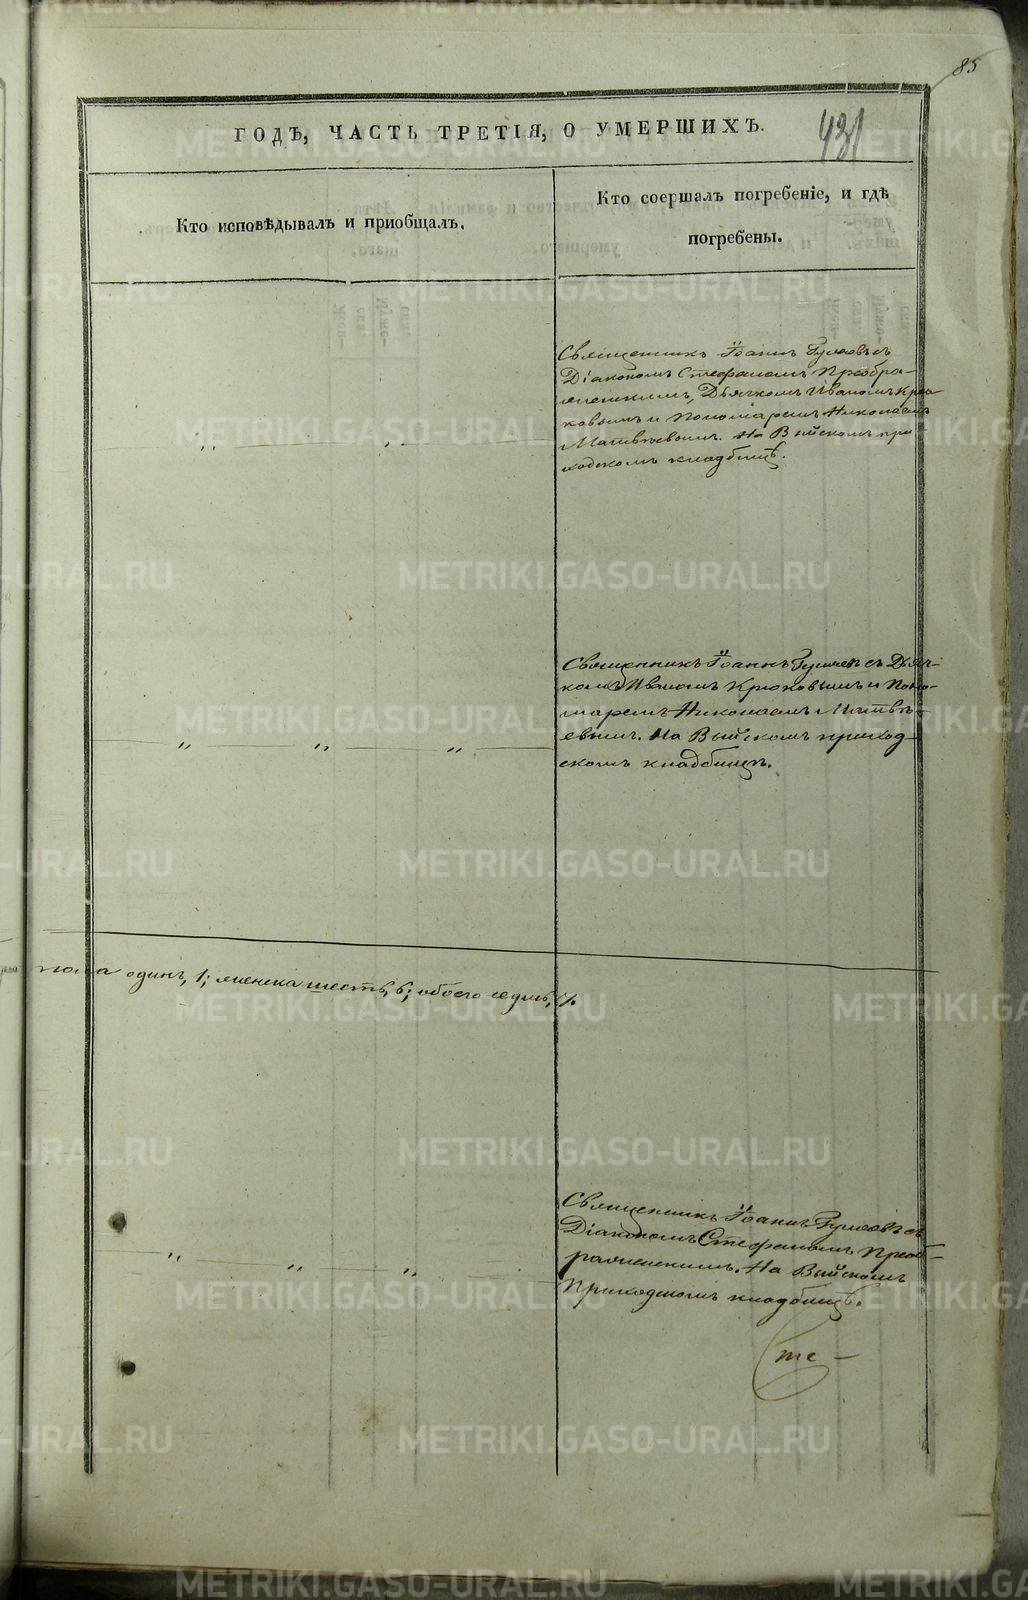 85
ГОДѢ, ЧАСТЬ ТРЕТІЯ, О УМЕРШИХЪ.
431
Кто исповѣдывалъ и приобщалъ.
Кто соершалъ погребеніе, и гдѣ
погребены.
Священникъ Іоаннъ съ
Діакономъ Стефаномъ Преобра-
женскимъ, Дьячкомъ Иваномъ Крю
ковымъ и Пономаремъ Николаемъ
Матвѣевымъ. На Выйскомъ при
ходскомъ кладбищѣ.
Священникъ Іоаннъ съ Дьяч-
комъ Иваномъ Крюковымъ и Поно-
маремъ Николаемъ Матвѣ-
евымъ. На Выйскомъ приход-
скомъ кладбищѣ.
пола одинъ, 1; женска шесть, 6; обоего седмь, 7.
Священникъ Іоаннъ съ
Діакономъ Стефаномъ Преоб-
раженскимъ. На Выйскомъ
Приходскомъ кладбищѣ.
Сте-
METRIKI.GASO-URAL.RU